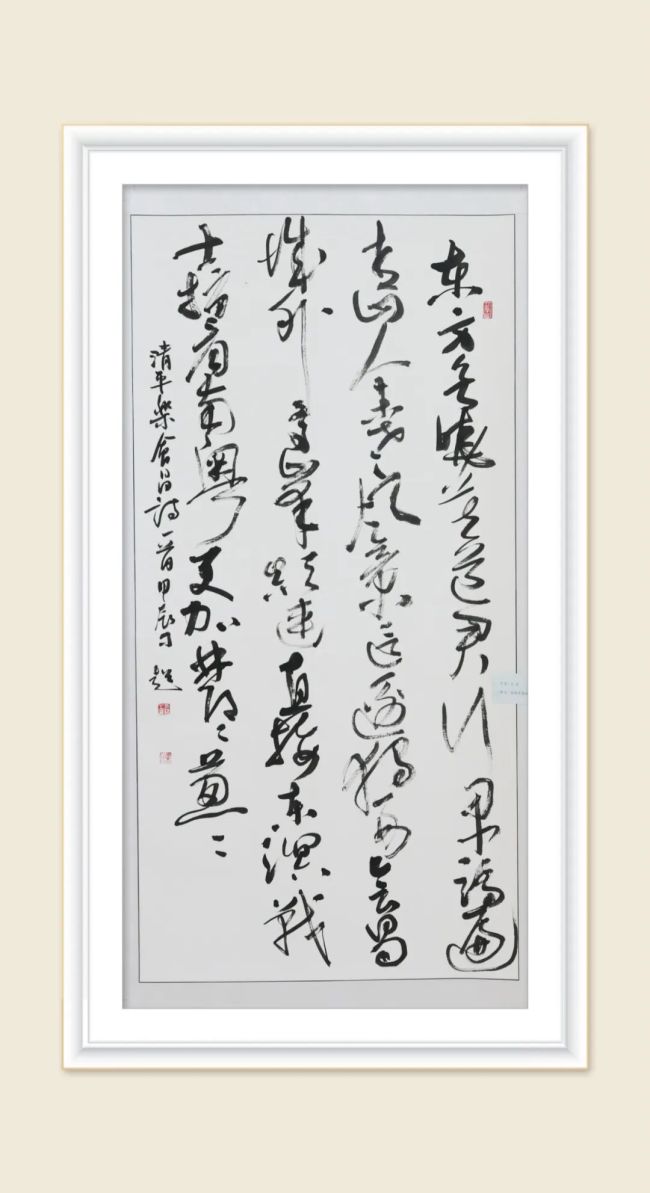 东方欲晓莫道君行早踏遍
青山人未老风景这边独好会昌
城外高峰颠连直接东溟战
士指看南粤更加郁〻葱〻
清平樂會昌詩一首甲辰